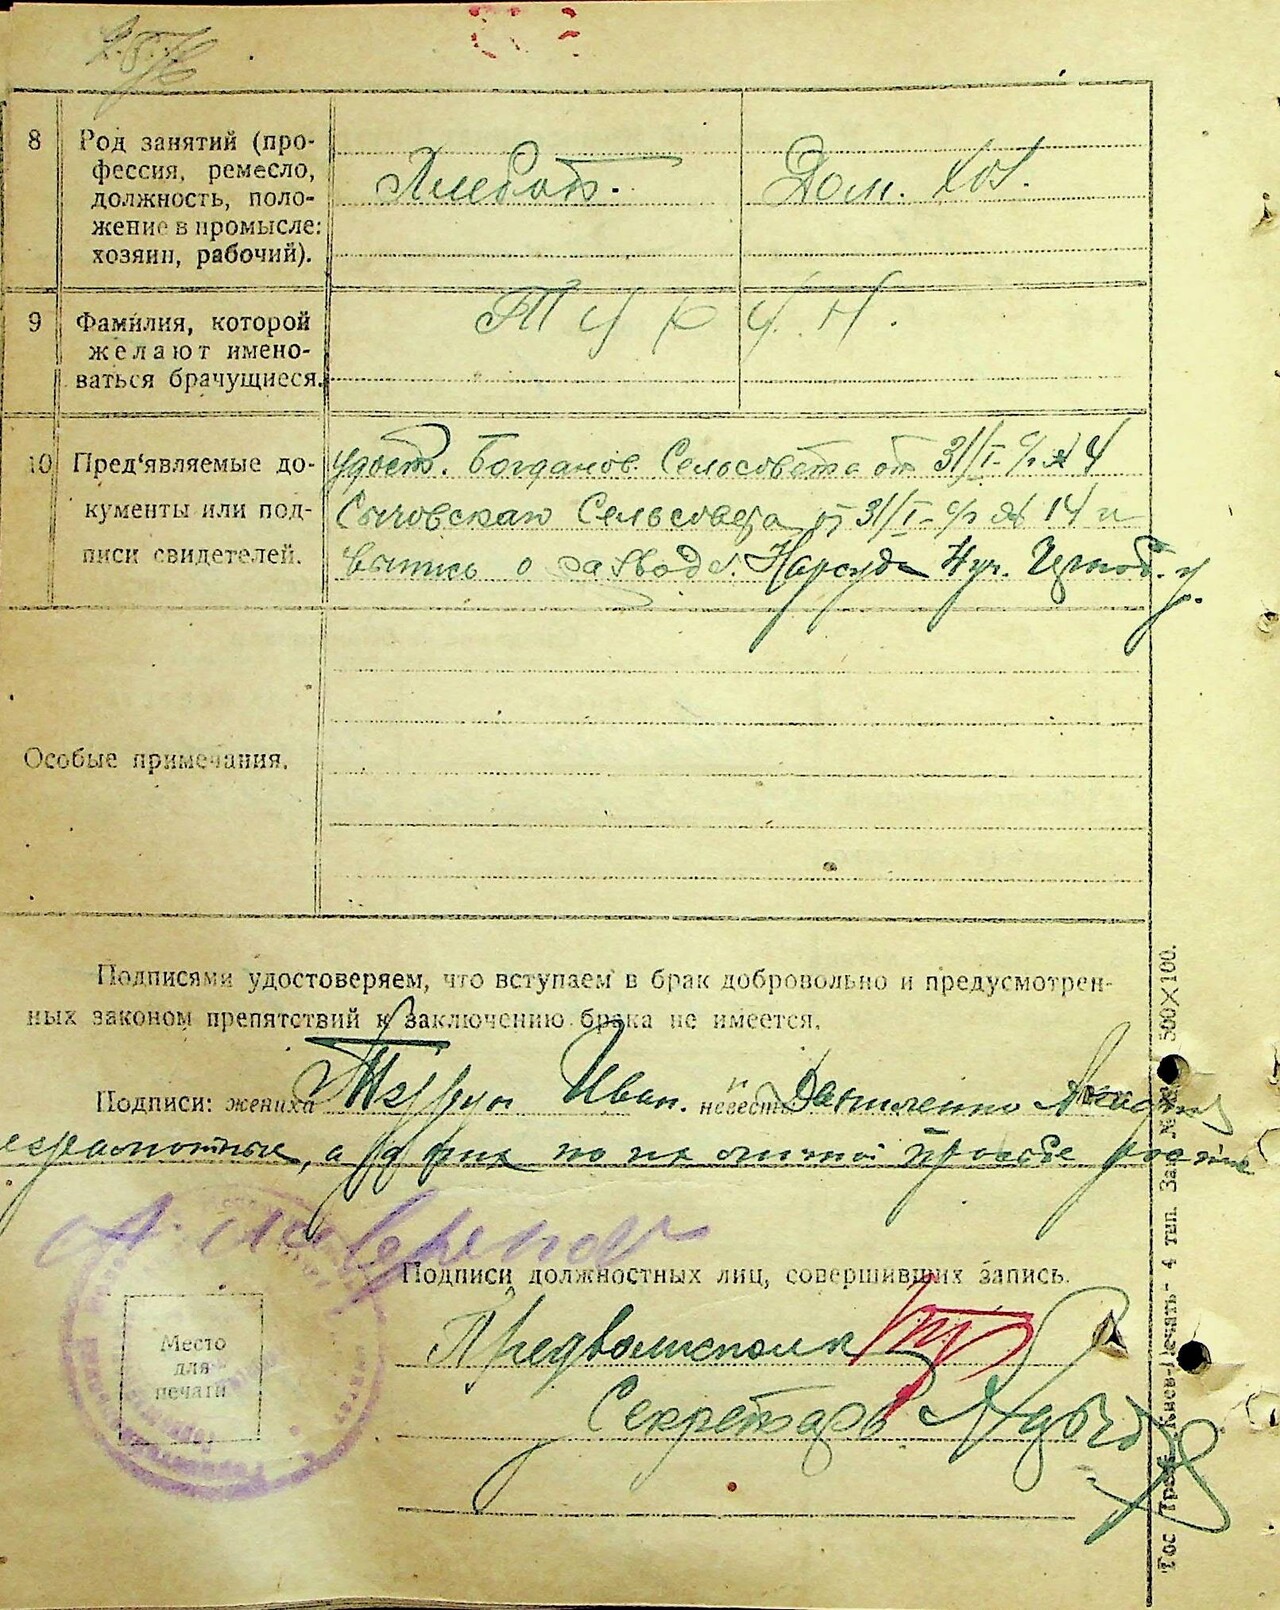 8
Род занятий (про-
фессия, ремесло,
должность, поло-
жение в промысле:
хозяин, рабочий).
Хлебоп.
Дом. хоз.
9
Фамилия, которой
желают имено-
ваться брачущиеся.
Т у р у н.
10
Пред'являемые до-
кументы или под-
писи свидетелей.
удост. Богданов. Сельсовета от 31/I- с/г № 4
Сычовскаго Сельсовета от 31/I- с/г № 14 и
выпись о разводе. Нарсуда 4 уч. Черноб. у.
Особые примечания.
Подписями удостоверяем, что вступаем в брак добровольно и предусмотрен-
ных законом препятствий к заключению брака не имеется.
Подписи: жениха Турун Иван. невесты
неграмотные, а за них по их личной просьбе
Подписи должностных лиц, совершивших запись.
Предволисполк
Секретарь
Место
для
печати
Гос Трест Киев-Печать- 4 тип. Зак. № 500×100.